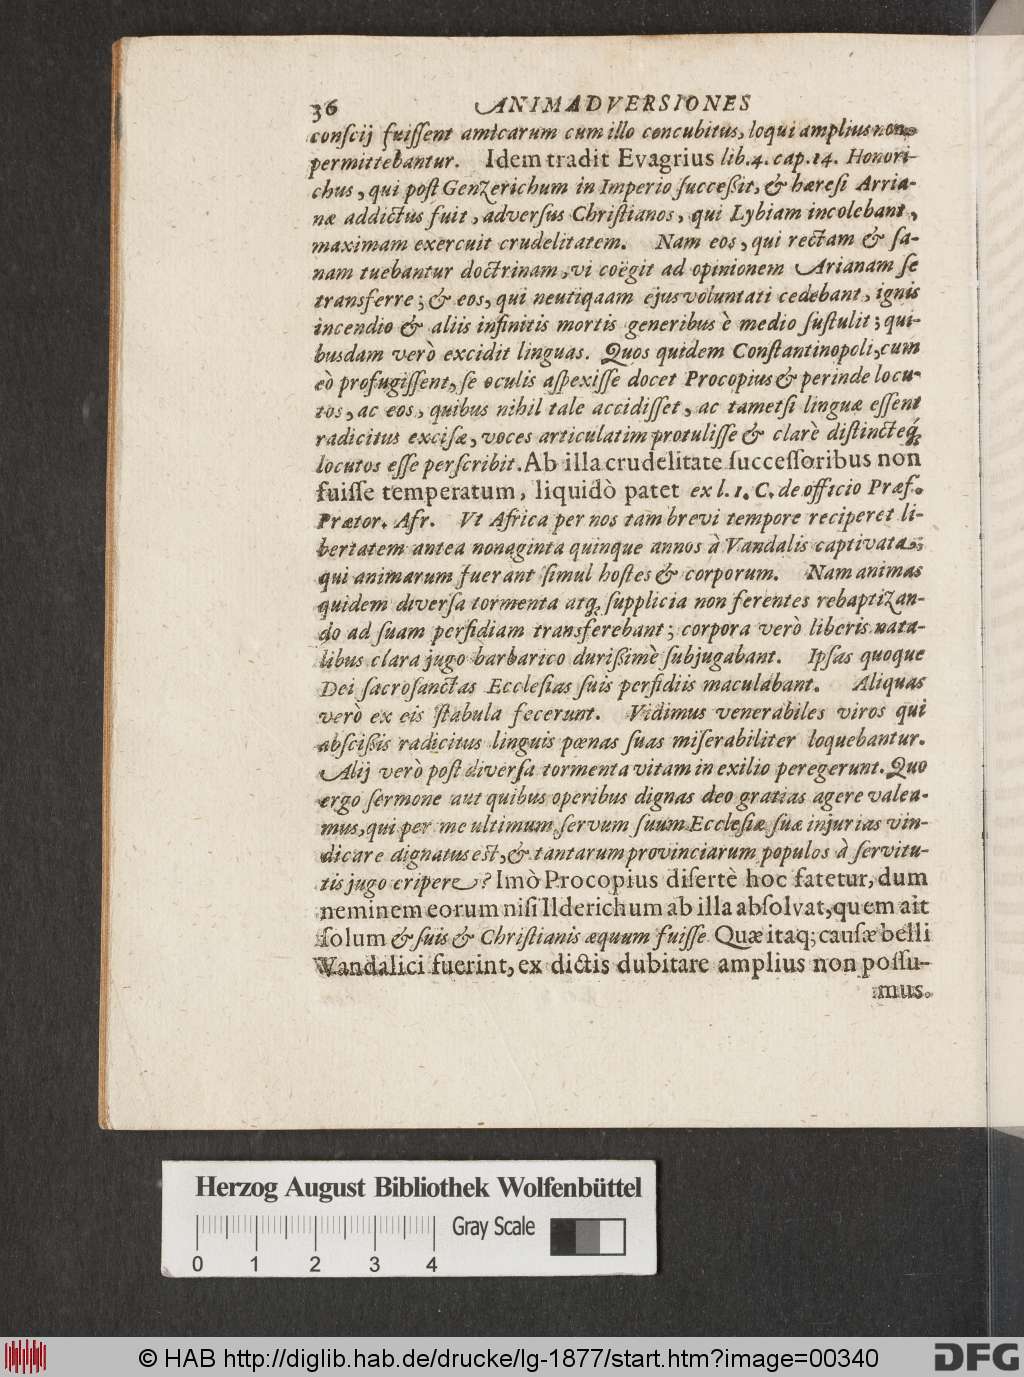 36 ANIMADVERSIONES
conſcij fuiſſent amicarum cum illo concubitus, loqui amplius non
permittebantur. Idem tradit Evagrius lib. 4. cap. 14. Honori-
chus, qui poſt Genzerichum in Imperio ſucceßit, & hæreſi Arria-
næ addictus fuit, adverſus Chriſtianos, qui Lybiam incolebant,
maximam exercuit crudelitatem. Nam eos, qui rectam & ſa-
nam tuebantur doctrinam, vi coëgit ad opinionem Arianam ſe
transferre; & eos, qui neutiqaam ejus voluntati cedebant, ignis
incendio & aliis infinitis mortis generibus è medio ſuſtulit; qui-
busdam verò excidit linguas. Quos quidem Conſtantinopoli, cum
eò profugiſſent, ſe oculis aſpexiſſe docet Procopius & perinde locu-
tos, ac eos, quibus nihil tale accidiſſet, ac tametſi linguæ eſſent
radicitus exciſæ, voces articulatim protuliſſe & clarè diſtincteq́;
locutos eſſe perſcribit. Ab illa crudelitate ſucceſſoribus non
fuiſſe temperatum, liquidò patet ex l. 1. C. de officio Præf.
Prætor. Afr. Vt Africa per nos tam brevi tempore reciperet li-
bertatem antea nonaginta quinque annos à Vandalis captivata;
qui animarum fuerant ſimul hoſtes & corporum. Nam animas
quidem diverſa tormenta atq; ſupplicia non ferentes rebaptizan-
do ad ſuam perfidiam transferebant; corpora verò liberis nata-
libus clara jugo barbarico durißimè ſubjugabant. Ipſas quoque
Dei ſacroſanctas Eccleſias ſuis perfidiis maculabant. Aliquas
verò ex eis ſtabula fecerunt. Vidimus venerabiles viros qui
abſcißis radicitus linguis pœnas ſuas miſerabiliter loquebantur.
Alij verò poſt diverſa tormenta vitam in exilio peregerunt. Quo
ergo ſermone aut quibus operibus dignas deo gratias agere valea-
mus, qui per me ultimum ſervum ſuum Eccleſiæ ſuæ injurias vin-
dicare dignatus eſt, & tantarum provinciarum populos à ſervitu-
tis jugo eripere? Imò Procopius diſertè hoc fatetur, dum
neminem eorum niſi Ilderichum ab illa abſolvat, quem ait
ſolum & ſuis & Chriſtianis æquum fuiſſe Quæ itaq; cauſæ belli
Vandalici fuerint, ex dictis dubitare amplius non poſſu-
mus.
Herzog August Bibliothek Wolfenbüttel
Gray Scale
0 1 2 3 4
© HAB http://diglib.hab.de/drucke/lg-1877/start.htm?image=00340
DFG